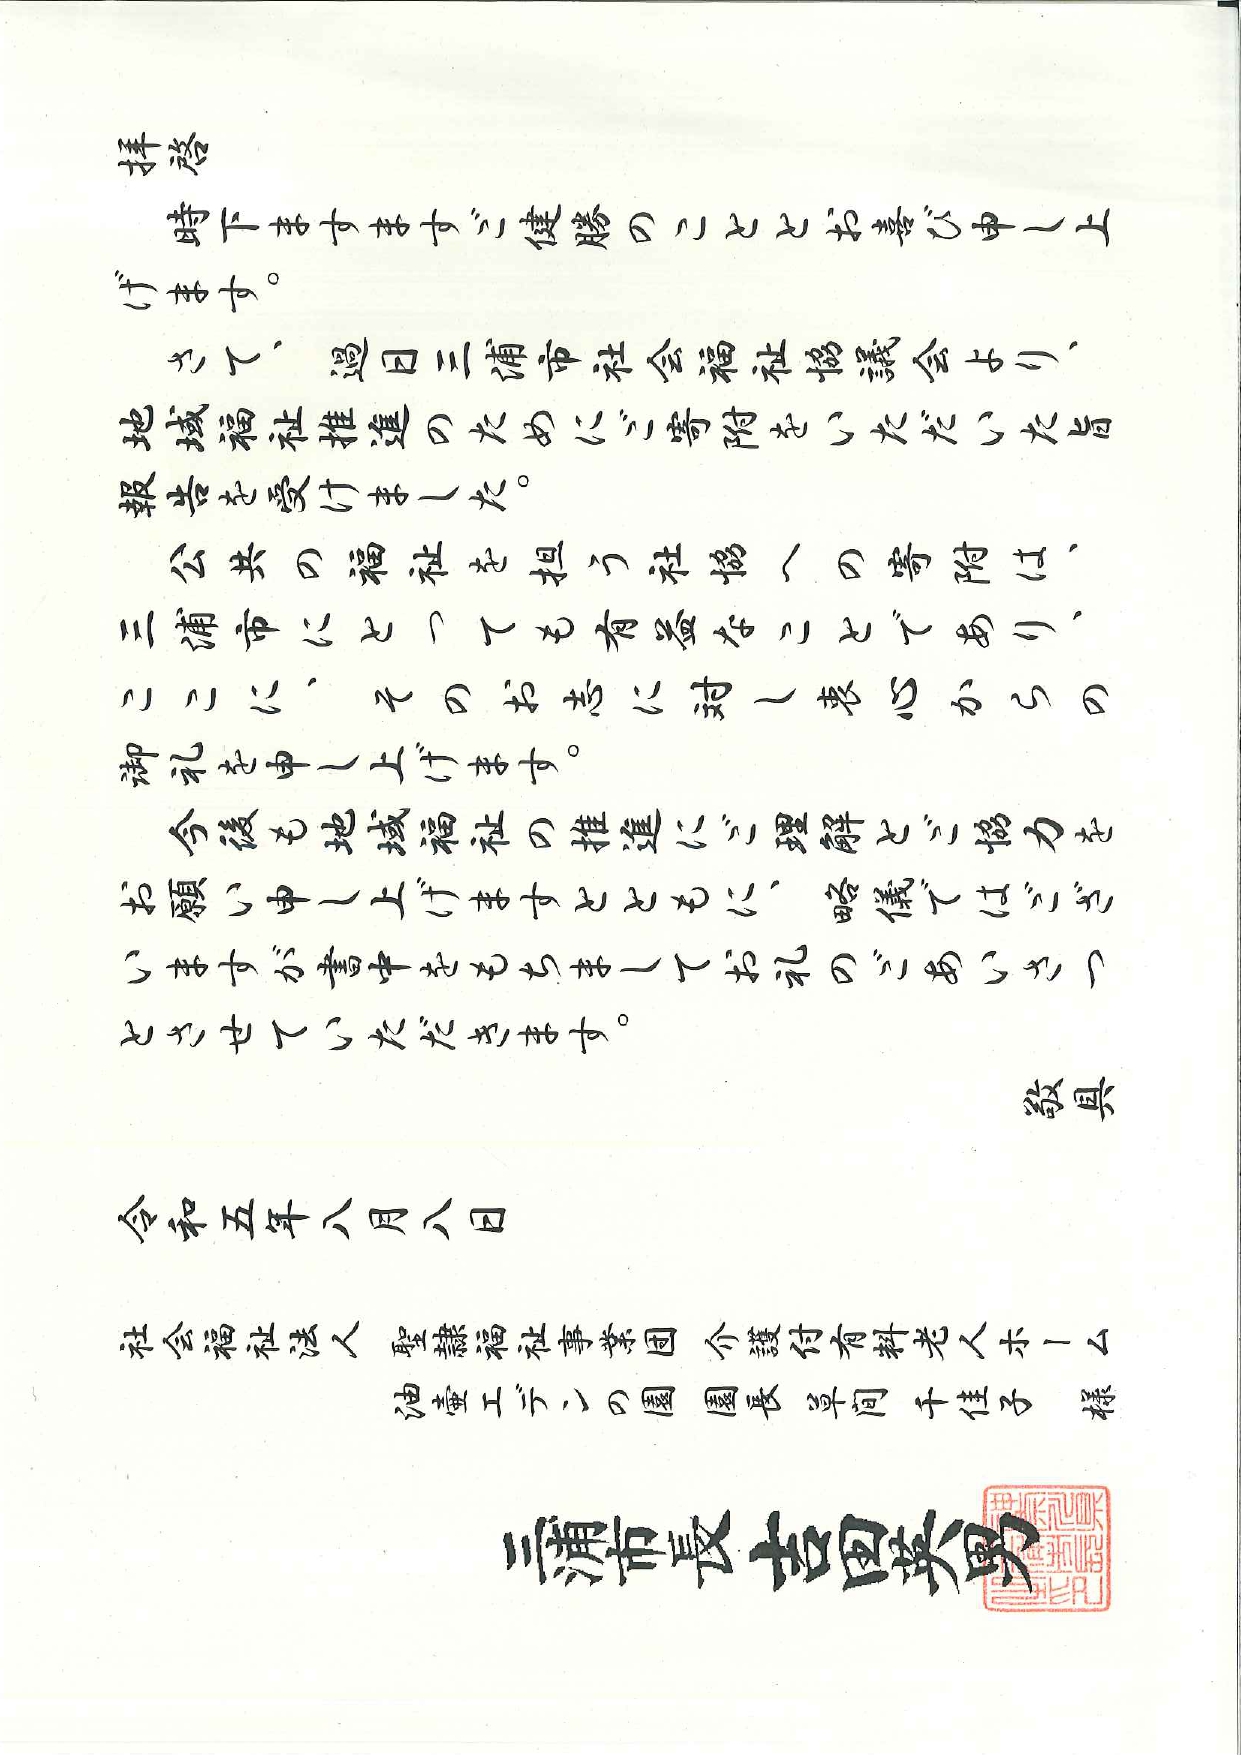 拝啓
時下ますますご健勝のこととお喜び申し上
げます。
さて、過日三浦市社会福祉協議会より、
地域福祉推進のためにご寄附をいただいた旨
報告を受けました。
公共の福祉を担う社協への寄附は、
三浦市にとっても有益なことであり、
ここに、そのお志に対し衷心からの
御礼を申し上げます。
今後も地域福祉の推進にご理解とご協力を
お願い申し上げますとともに、略儀ではござ
いますが書中をもちましてお礼のごあいさつ
とさせていただきます。
敬具
令和五年八月八日
社会福祉法人 聖隷福祉事業団 介護付有料老人ホーム
油壷エデンの園 園長 草間 千佳子 様
三浦市長 吉田英男